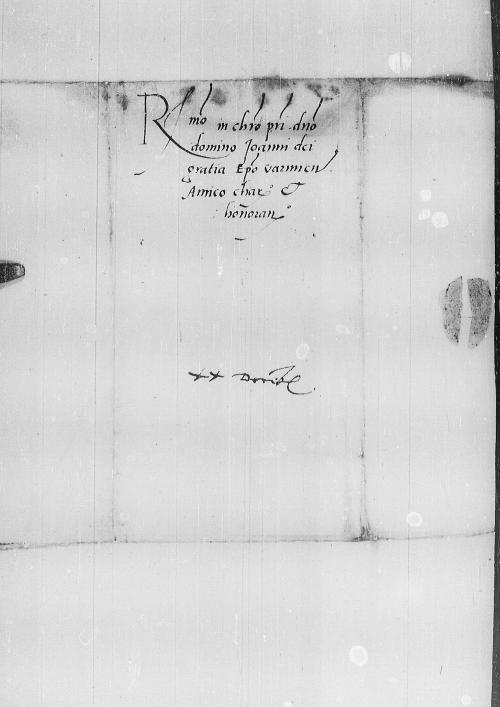 R mo in chrō pri .dnō
domino Joanni dei
gratia Epō varmien
Amico char° &
honoran°
xx